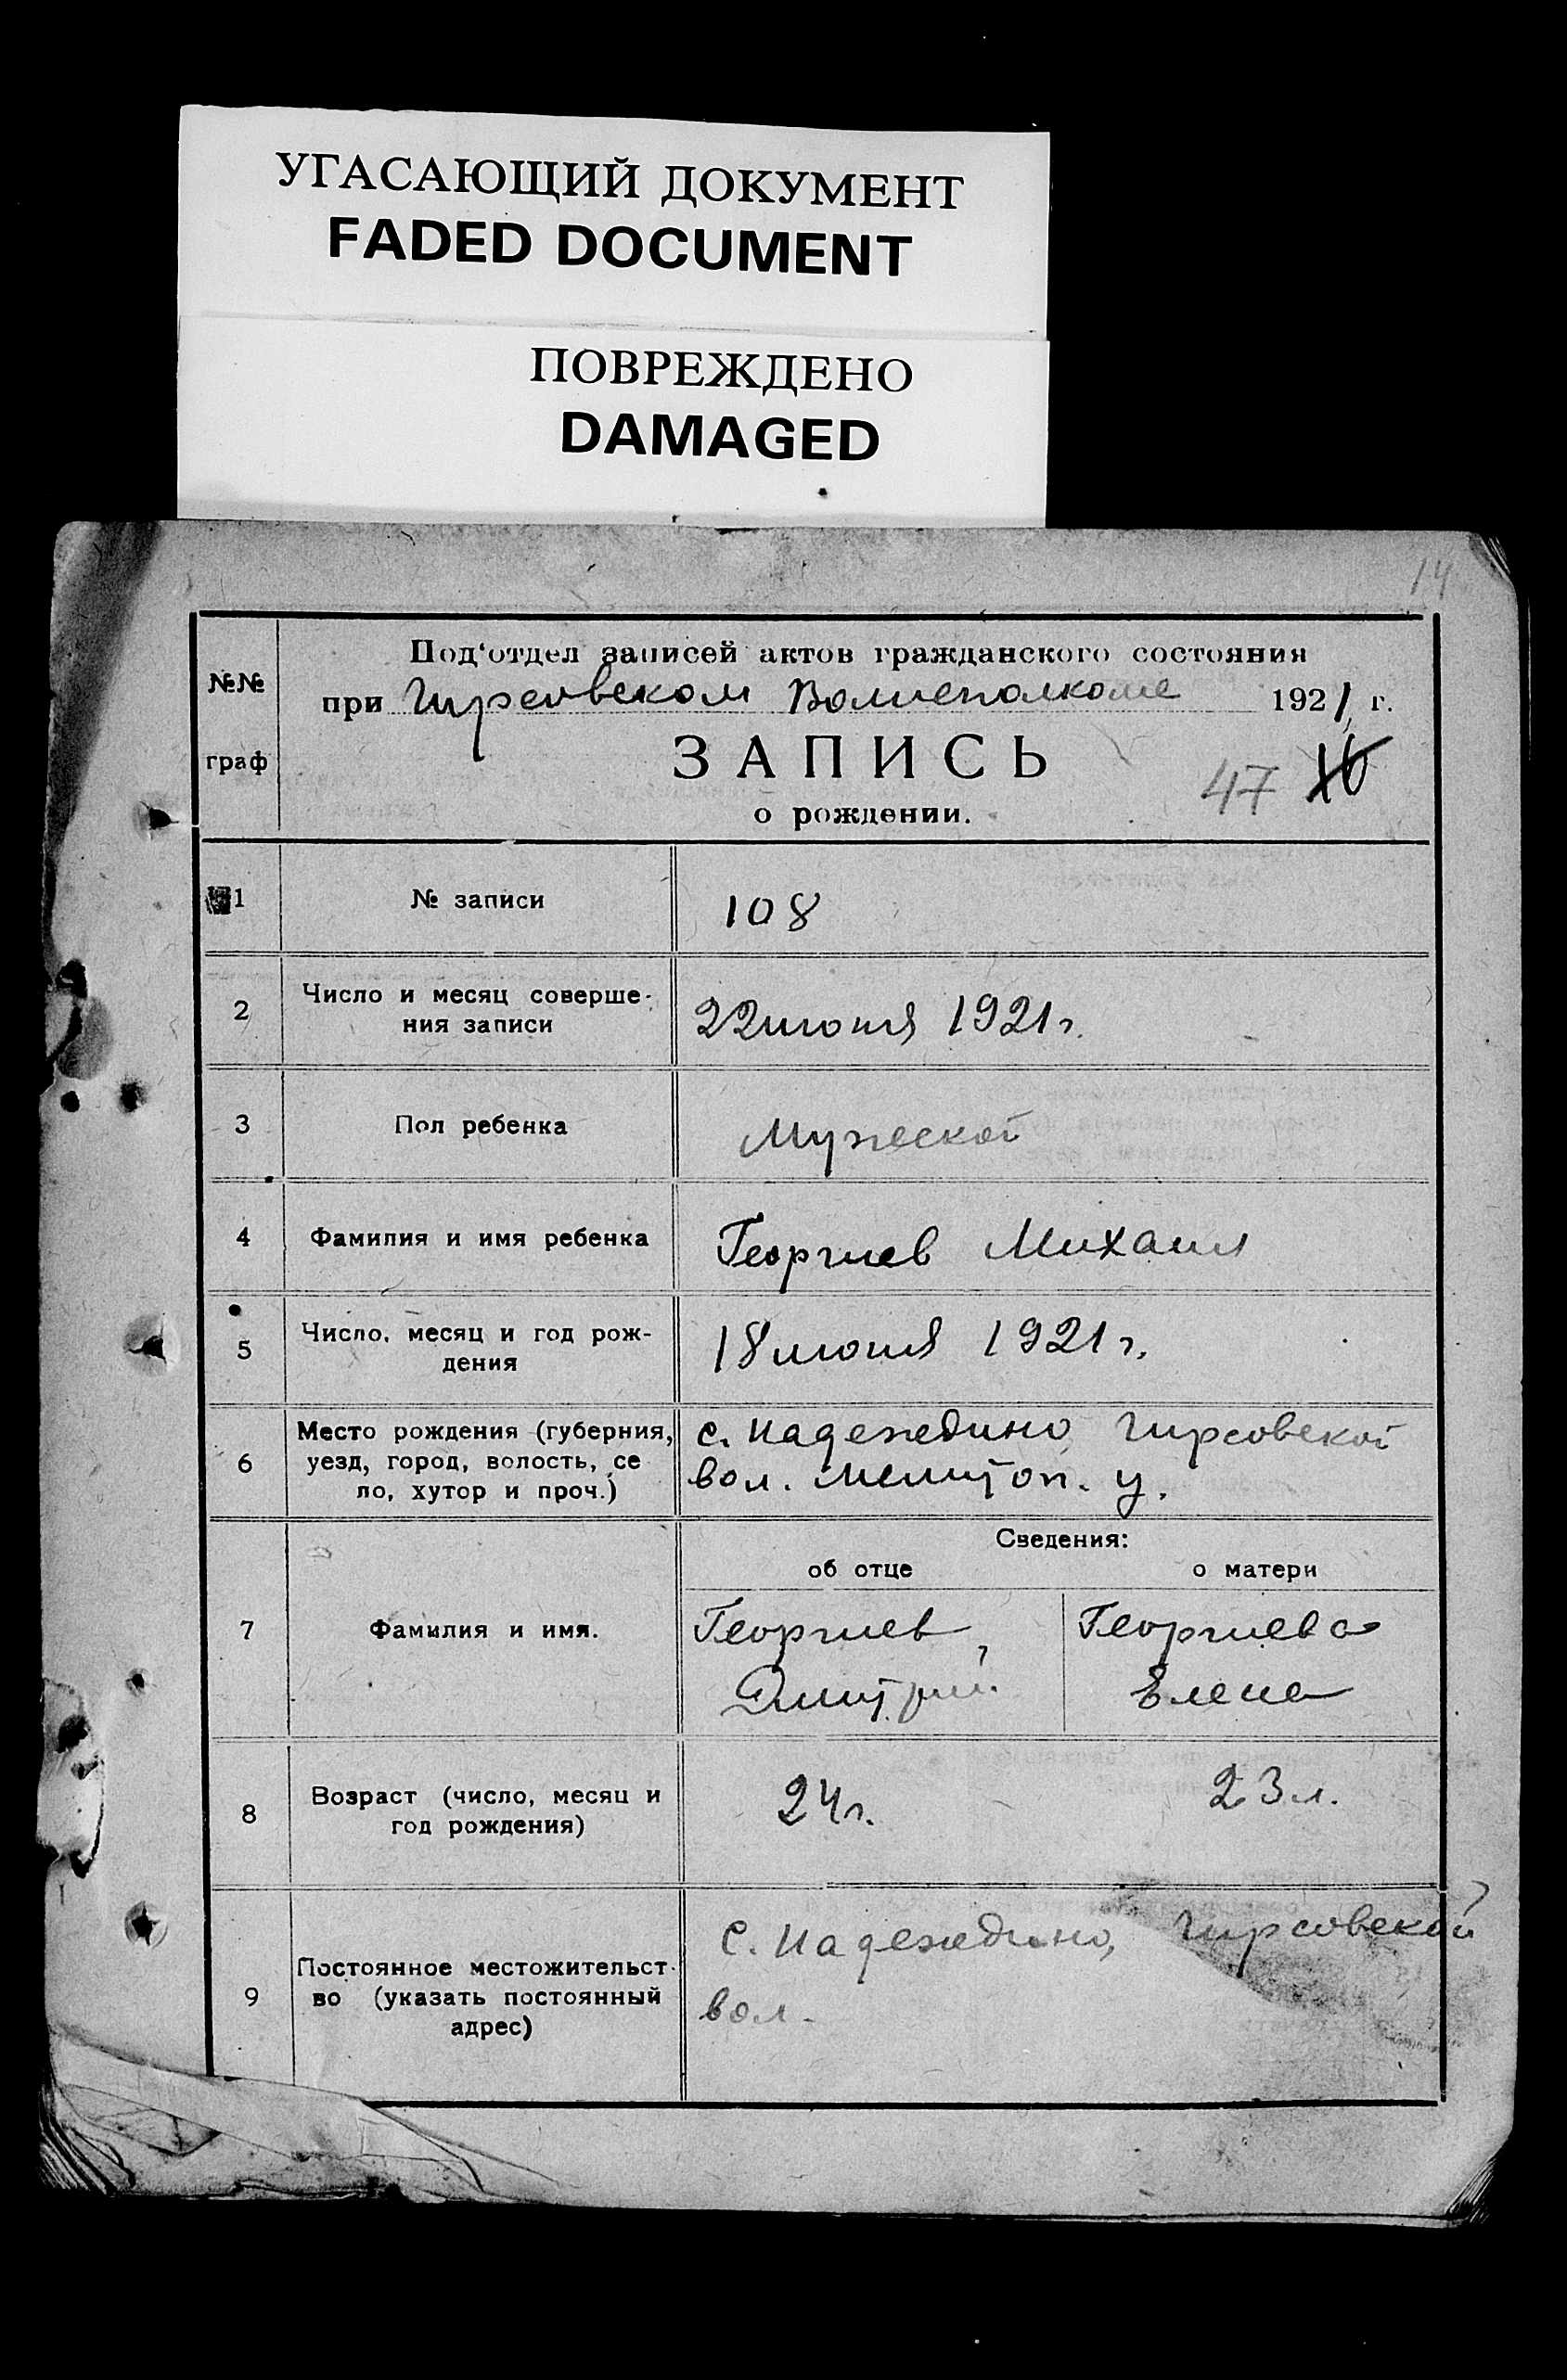 УГАСАЮЩИЙ ДОКУМЕНТ
FADED DOCUMENT
ПОВРЕЖДЕНО
DAMAGED
14
№№
граф
Под‘отдел записей актов гражданского состояния
при Гирсовском Волисполкоме 1921 г.
ЗАПИСЬ
47 16
о рождении.
1
№ записи
108
2
Число и месяц соверше-
ния записи
22 июня 1921 г.
3
Пол ребенка
Мужеской
4
Фамилия и имя ребенка
Георгиев Михаил
5
Число, месяц и год рож-
дения
18 июня 1921 г.
6
Место рождения (губерния,
уезд, город, волость, се
ло, хутор и проч.)
с. Надеждино Гирсовской
вол. Мелитоп. у.
Сведения:
об отце
о матери
7
Фамилия и имя.
Георгиев
Дмитрий.
Георгиева
Елена
8
Возраст (число, месяц и
год рождения)
24 г.
23 л.
9
Постоянное местожительст-
во (указать постоянный
адрес)
с. Надеждино, Гирсовской
вол.